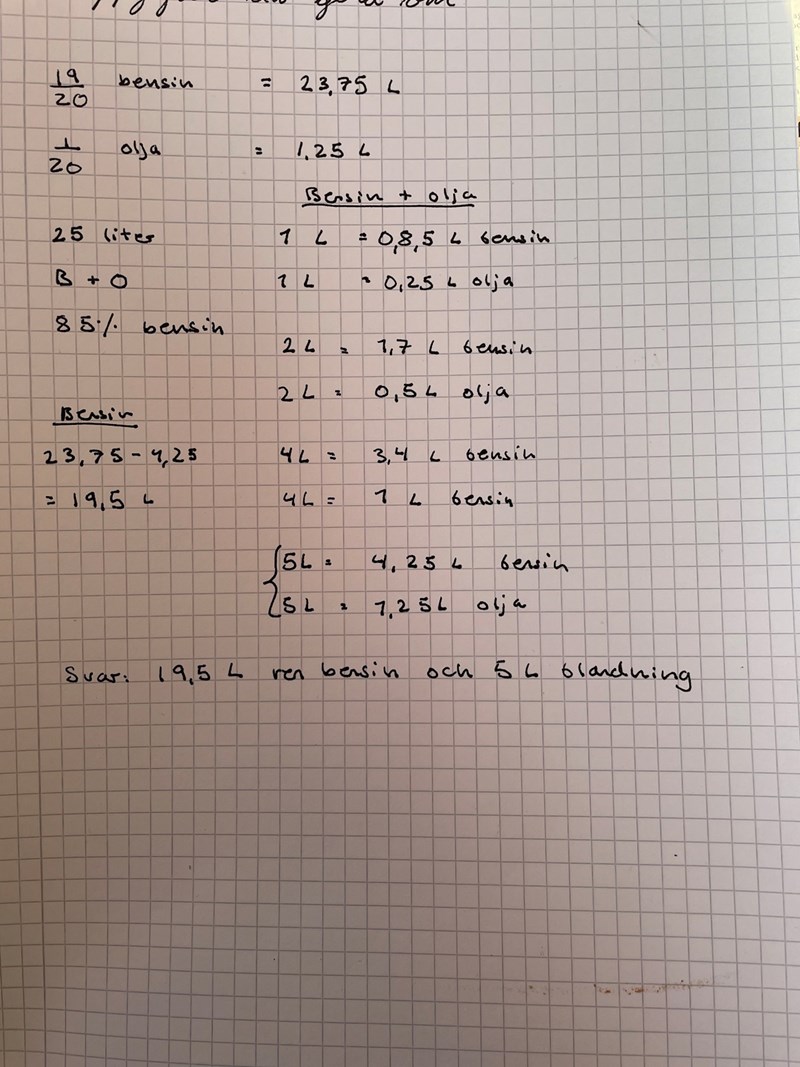 19/20 bensin = 23,75 L
1/20 olja = 1,25 L
Bensin + olja
25 liter 1 L = 0,8,5 L bensin
B + O 1 L = 0,25 L olja
85% bensin
2L = 1,7 L bensin
2L = 0,5 L olja
Bensin
23,75 - 4,25 4L = 3,4 L bensin
= 19,5 L 4L = 1 L bensin
5L = 4,25 L bensin
5L = 1,25L olja
Svar: 19,5 L ren bensin och 5 L blandning